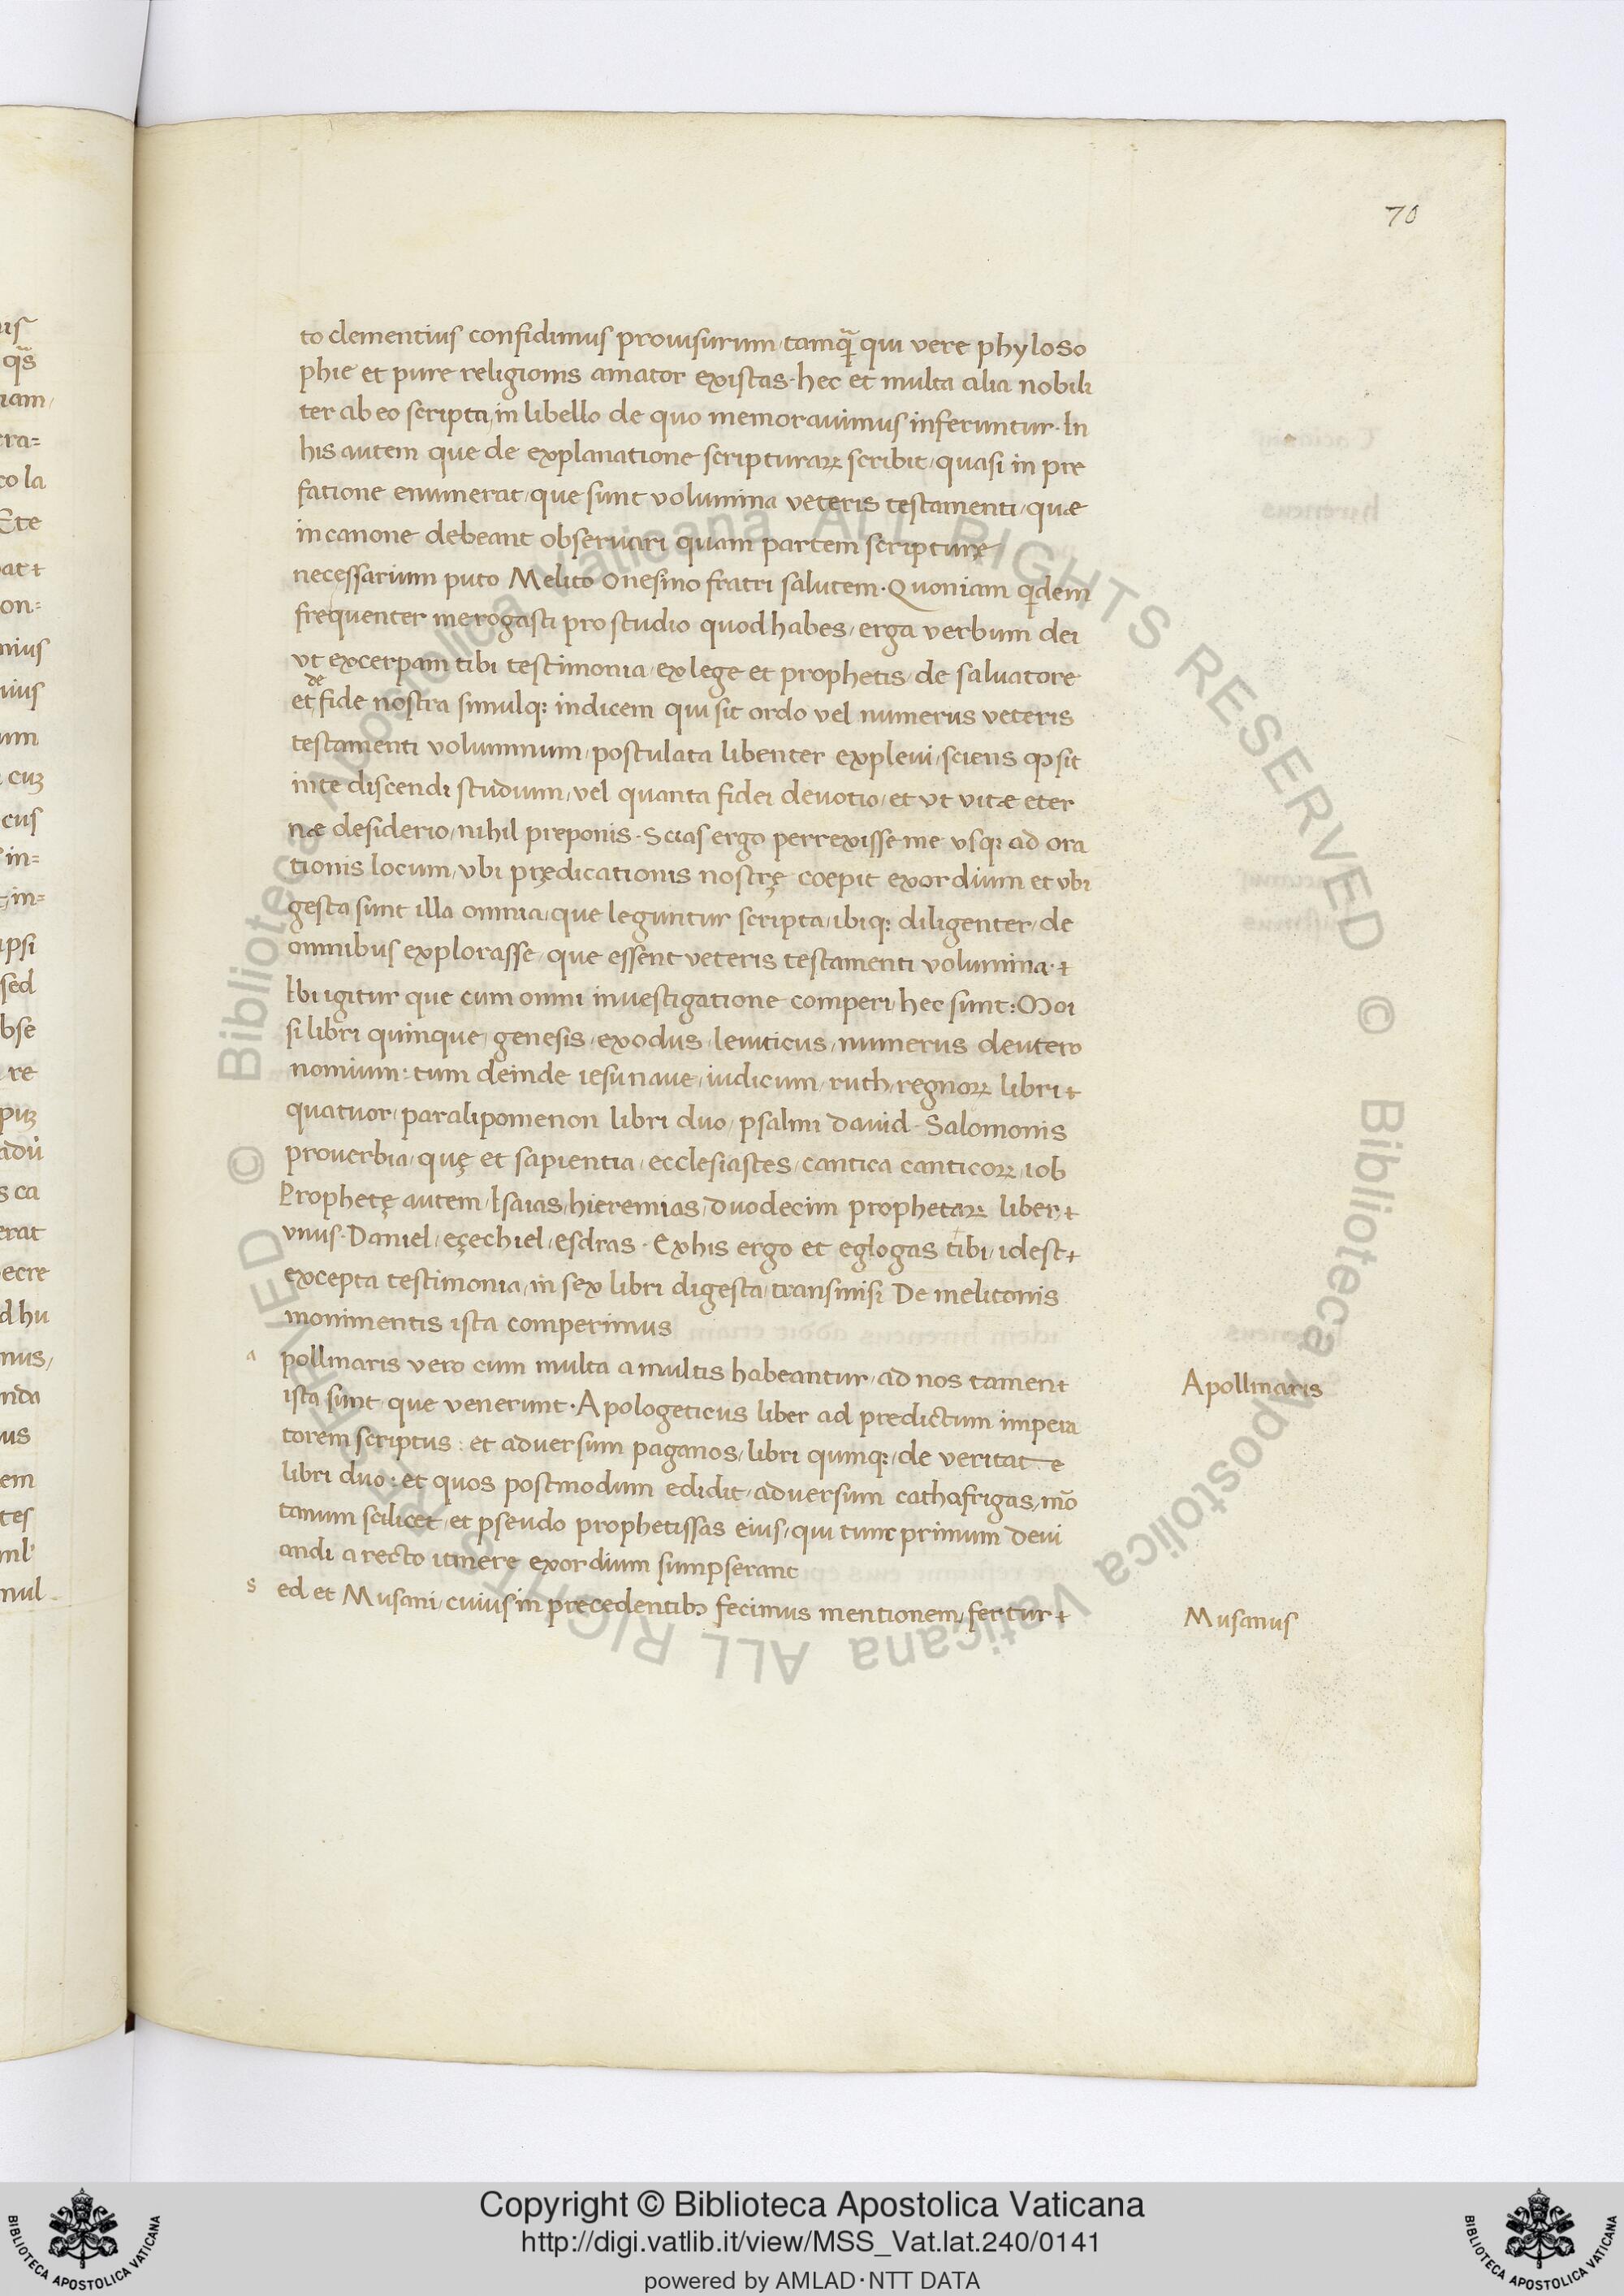 70
to clementius confidimus provisurum, tamq̃ qui vere phyloso
phie et pure religionis amator existas. hec et multa alia nobili
ter ab eo scripta, in libello de quo memoravimus inferuntur. In
his autem que de explanatione scripturaꝝ scribit, quasi in pre
fatione enumerat, que sunt volumina veteris testamenti, quæ
in canone debeant observari quam partem scripturę
necessarium puto Melito Onesimo fratri salutem. Quoniam qͥdem
frequenter me rogasti pro studio quod habes, erga verbum dei
vt excerpam tibi testimonia, ex lege et prophetis, de salvatore
et de fide nostra simulq; indicem qui sit ordo vel numerus veteris
testamenti voluminum, postulata libenter explevi, sciens ꝙ sit
in te discendi studium, vel quanta fidei devotio, et vt vitæ eter
næ desiderio, nihil preponis. Scias ergo perrexisse me vsq; ad ora
tionis locum, vbi prędicationis nostrę coepit exordium et vbi
gesta sunt illa omnia, que leguntur scripta, ibiq; diligenter, de
omnibus explorasse, que essent veteris testamenti volumina.
Ibi igitur que cum omni investigatione comperi, hec sunt: Moi
si libri quinque, genesis, exodus, leviticus, numerus deutero
nomium: tum deinde iesu nave, iudicum, ruth, regnoꝝ libri
quatuor, paralipomenon libri duo, psalmi david. Salomonis
proverbia, quę et sapientia, ecclesiastes, cantica canticoꝝ, iob
Prophetę autem, Isaias, hieremias, duodecim prophetaꝝ liber,
vnus. Daniel, eçechiel, esdras. Ex his ergo et eglogas tibi, idest
excepta testimonia, in sex libri digesta, transmisi De melitonis
monimentis ista comperimus
a pollinaris vero cum multa a multis habeantur, ad nos tamen
ista sunt que venerunt. Apologeticus liber ad predictum impera
torem scriptus: et adversum paganos, libri quinq;, de veritate
libri duo: et quos postmodum edidit, adversum cathafrigas, mõ
tanum scilicet, et pseudo prophetissas eius, qui tunc primum devi
andi a recto itinere exordium sumpserant
s ed et Musani, cuius in precedentibꝫ fecimus mentionem, fertur
Apollinaris
Musanus
© Biblioteca Apostolica Vaticana ALL RIGHTS RESERVED © Biblioteca Apostolica Vaticana ALL RIGHTS RESERVED
Copyright © Biblioteca Apostolica Vaticana
http://digi.vatlib.it/view/MSS_Vat.lat.240/0141
powered by AMLAD·NTT DATA
BIBLIOTECA APOSTOLICA VATICANA
BIBLIOTECA APOSTOLICA VATICANA